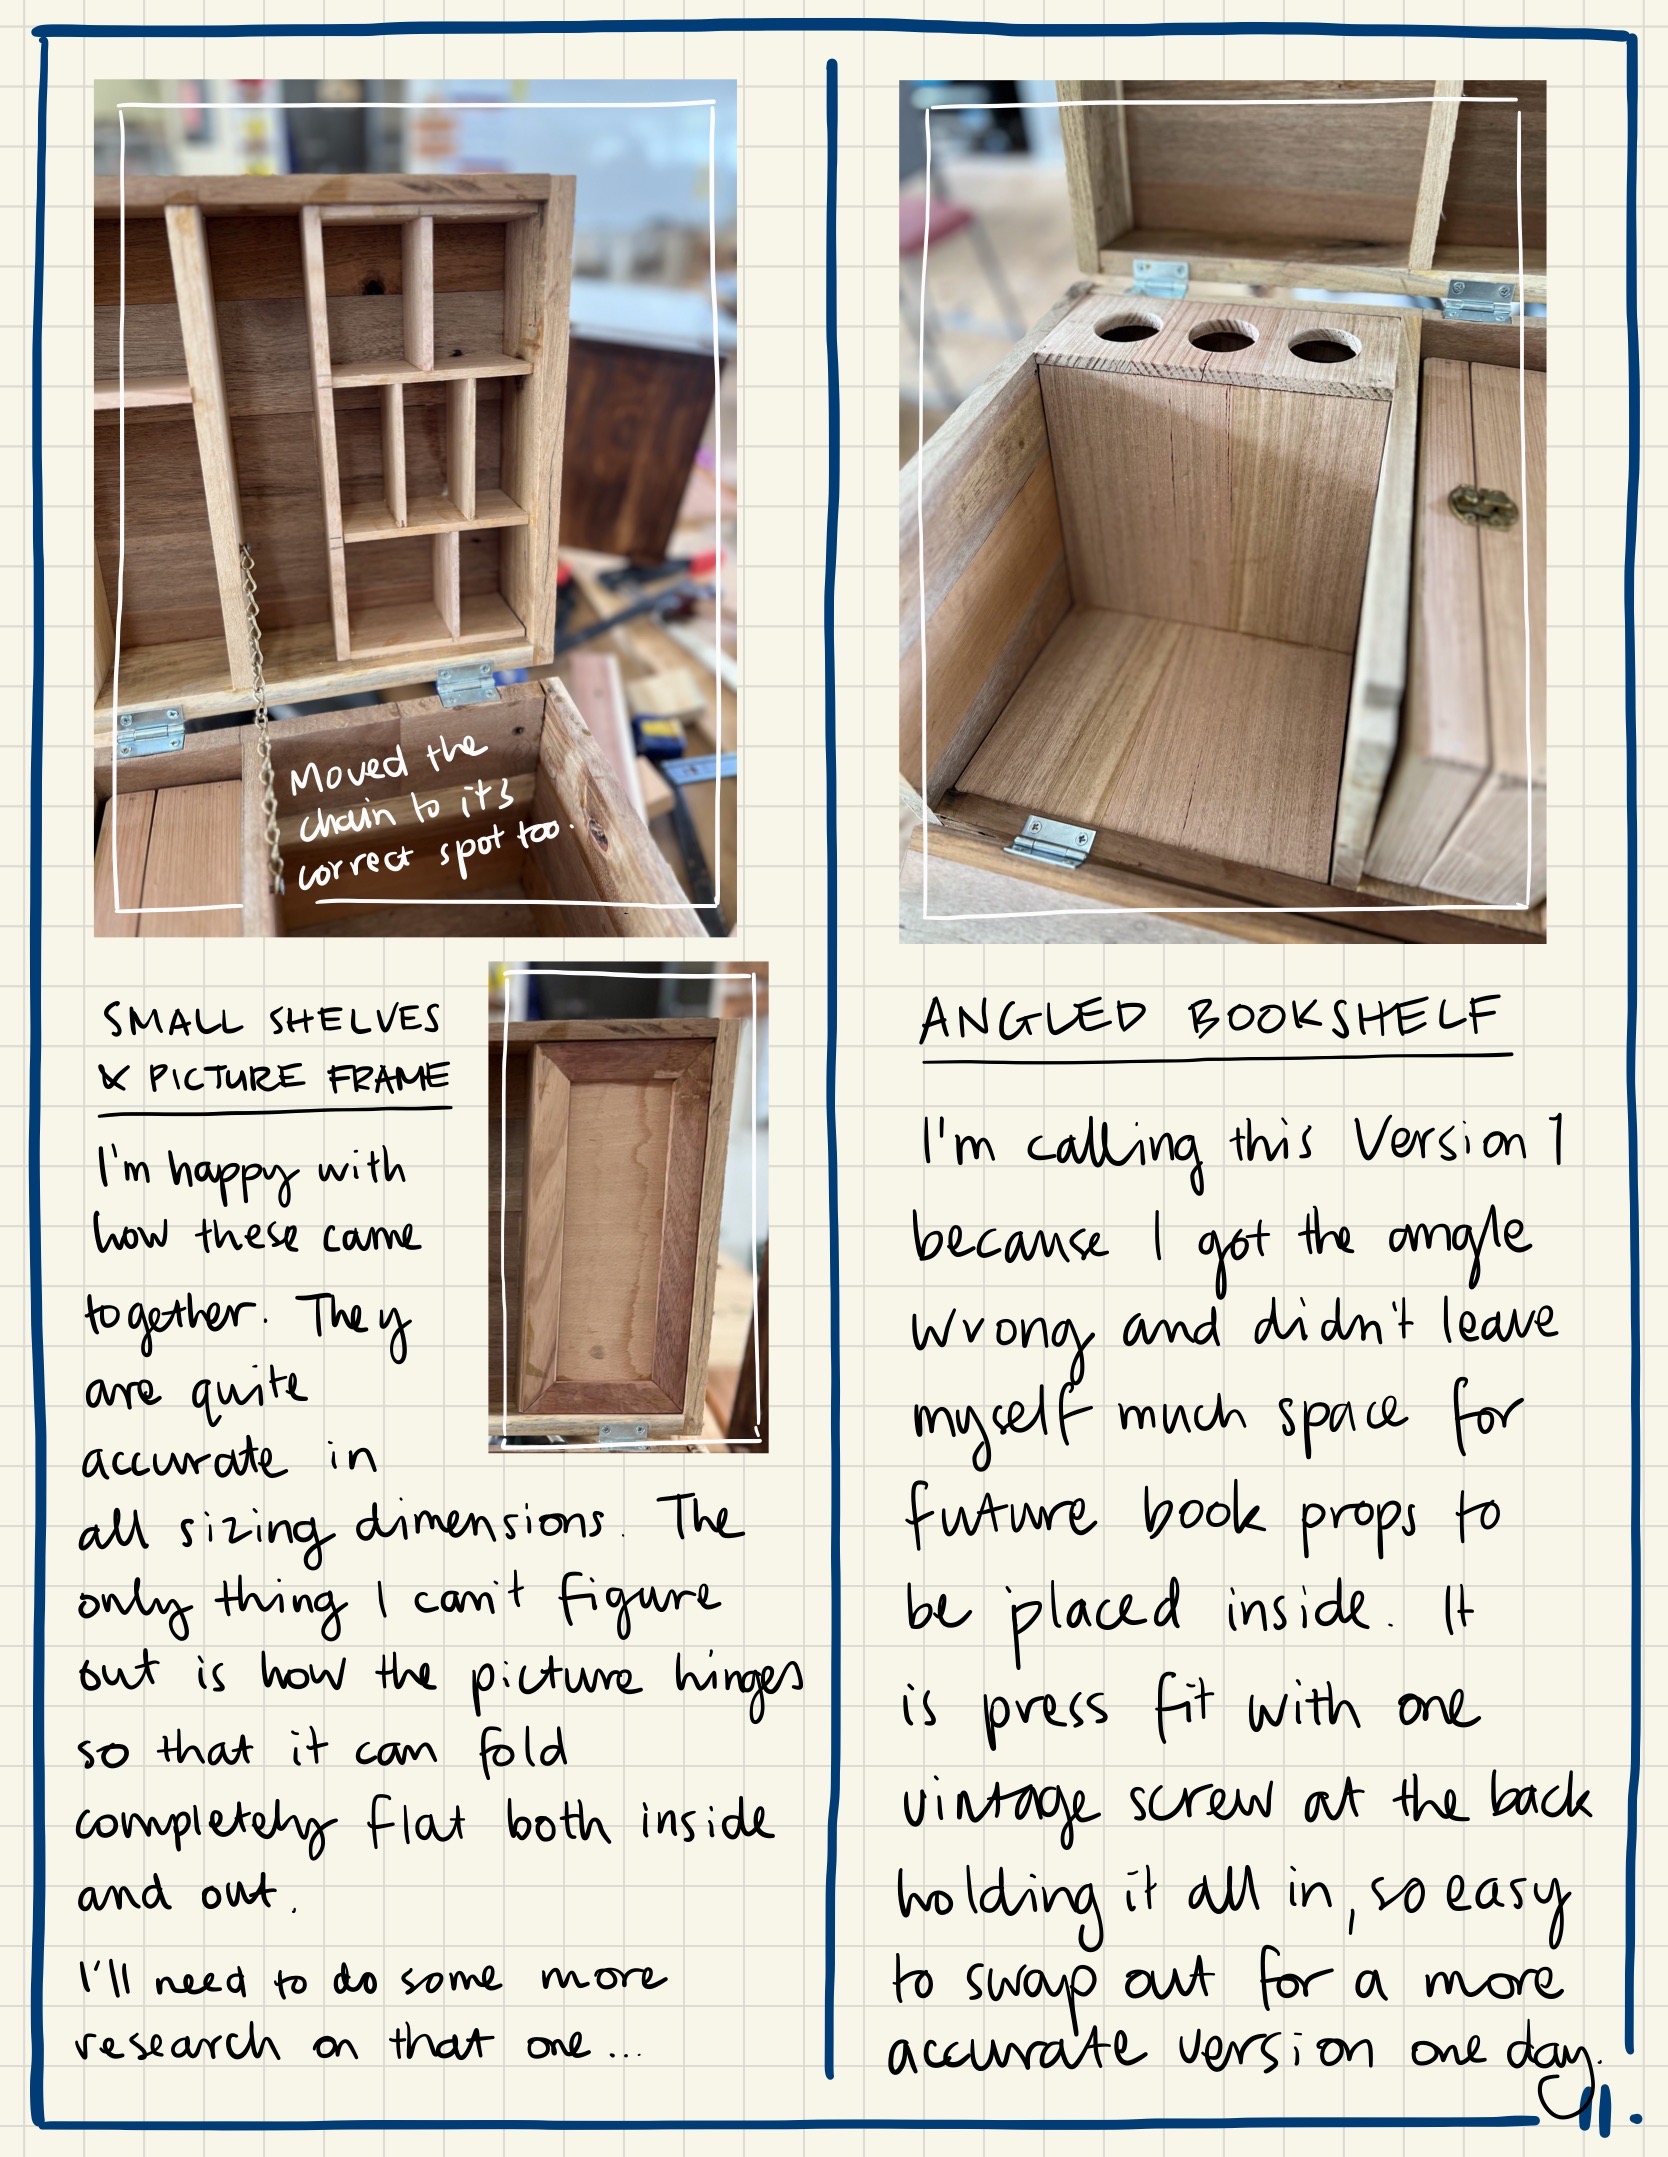 Moved the
chain to it's
correct spot too.
SMALL SHELVES
& PICTURE FRAME
I'm happy with
how these came
together. They
are quite
accurate in
all sizing dimensions. The
only thing I can't figure
out is how the picture hinges
so that it can fold
completely flat both inside
and out.
I'll need to do some more
research on that one...
ANGLED BOOKSHELF
I'm calling this Version 1
because I got the angle
wrong and didn't leave
myself much space for
future book props to
be placed inside. It
is press fit with one
vintage screw at the back
holding it all in, so easy
to swap out for a more
accurate version one day.
11.